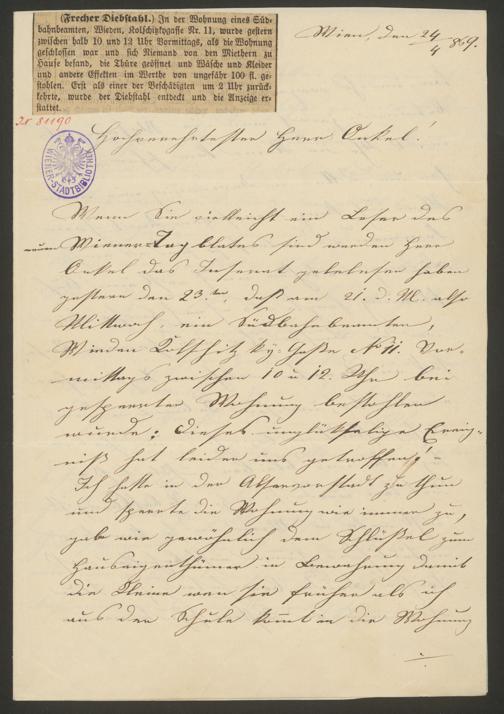 (Frecher Diebstahl.) In der Wohnung eines Süd-
bahnbeamten, Wieden, Kolschitzkygasse Nr. 11, wurde gestern
zwischen halb 10 und 12 Uhr Vormittags, als die Wohnung
geschlossen war und sich Niemand von den Miethern zu
Hause befand, die Thüre geöffnet und Wäsche und Kleider
und andere Effekten im Werthe von ungefähr 100 fl. ge-
stohlen. Erst als einer der Beschädigten um 2 Uhr zurück-
kehrte, wurde der Diebstahl entdeckt und die Anzeige er-
stattet.
Wien, den 24/4 869.
81190
WIENER-STADTBIBLIOTHEK
Hochverehrtester Herr Onkel!
Wenn Sie vielleicht ein Leser des
Wiener-Tagblates sind werden Herr
Onkel das Inserat gelesen haben
gestern den 23.ten, daß am 21. d. M. also
Mittwoch, ein Südbahnbeamten,
Wieden Gaße No 11. Vor-
mittags zwischen 10 u 12. Uhr bei
gesperrter Wohnung bestohlen
wurde; dieses unglükselige Ereig-
niß hat leider uns getroffen! –
Ich hatte in der Alservorstadt zu thun
und sperrte die Wohnung wie immer zu,
gab wie gewöhnlich dem Schlüßel zum
Hauseigenthümer in Bewahrung damit
die Kleine wen sie früher als ich
aus der Schule komt in die Wohnung